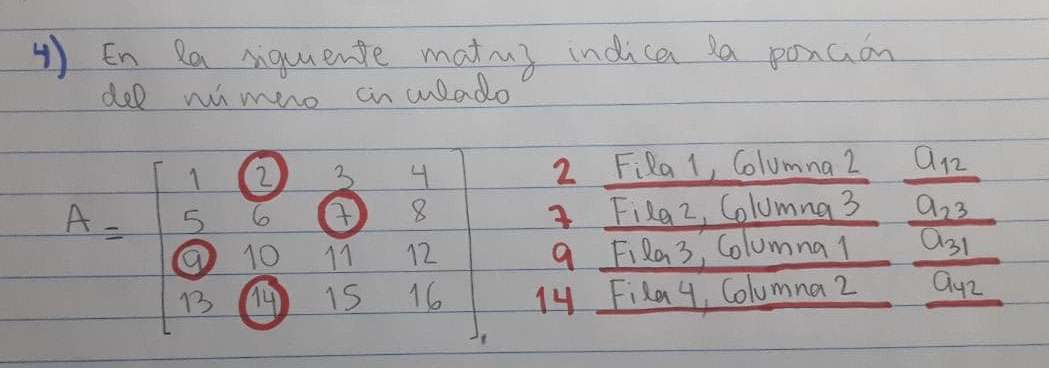 4) En la siguiente matriz indica la posición
del número circulado
A = 1 2 3 4
5 6 7 8
9 10 11 12
13 14 15 16
2 Fila 1, Columna 2 a12
7 Fila 2, Columna 3 a23
9 Fila 3, Columna 1 a31
14 Fila 4, Columna 2 a42